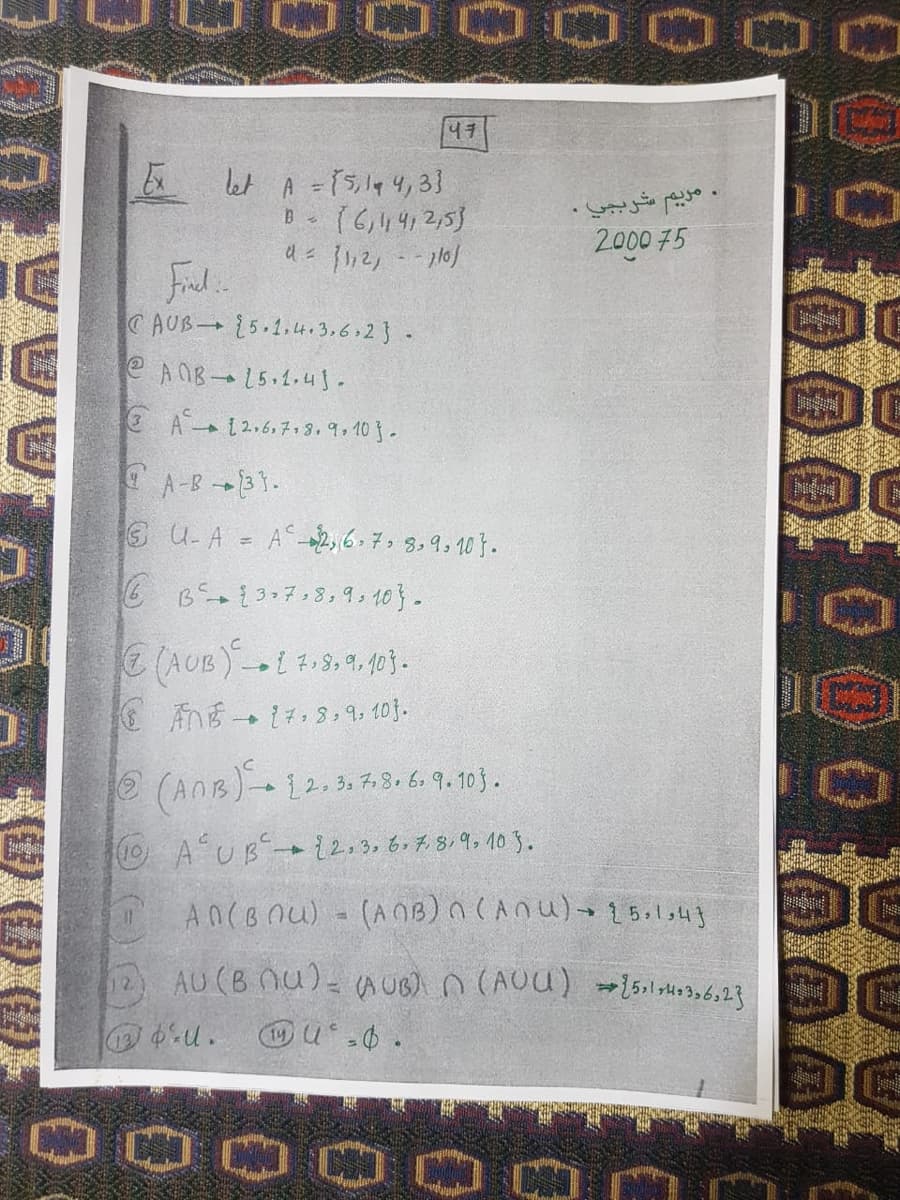 47
Ex let A = {5,1,4,3}
B = {6,1,4,2,5}
U = {1,2, - - ,10}
مريم شربجي .
200075
Find :-
① AUB → {5,1,4,3,6,2} .
② A∩B → {5,1,4} .
③ Aᶜ → {2,6,7,8,9,10} .
④ A-B → {3} .
⑤ U-A = Aᶜ → {2,6,7,8,9,10} .
⑥ Bᶜ → {3,7,8,9,10} .
⑦ (AUB)ᶜ → {7,8,9,10} .
⑧ Aᶜ∩Bᶜ → {7,8,9,10} .
⑨ (A∩B)ᶜ → {2,3,7,8,6,9,10} .
⑩ Aᶜ U Bᶜ → {2,3,6,7,8,9,10} .
⑪ A∩(B∩U) = (A∩B)∩(A∩U) → {5,1,4}
⑫ AU(B∩U) = (AUB)∩(AUU) ⇒ {5,1,4,3,6,2}
⑬ ϕᶜ=U . ⑭ Uᶜ = ϕ .